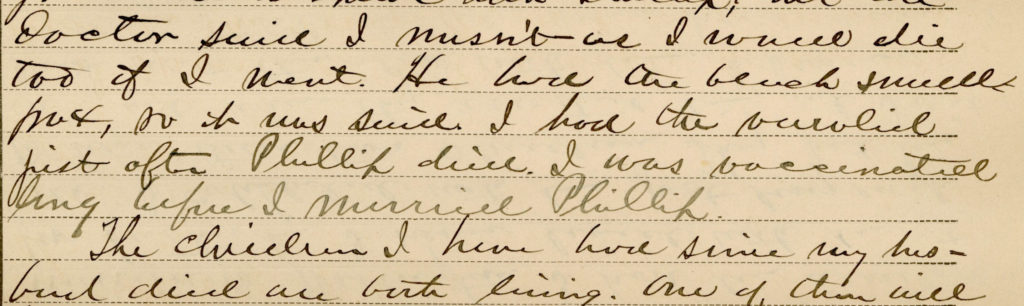 Doctor said I mustn't as I would die
too if I went. He had the black small-
pox, so it was said. I had the varolid
just after Phillip died. I was vaccinated
long before I married Phillip.
The children I have had since my hus-
band died are both living. One of them will